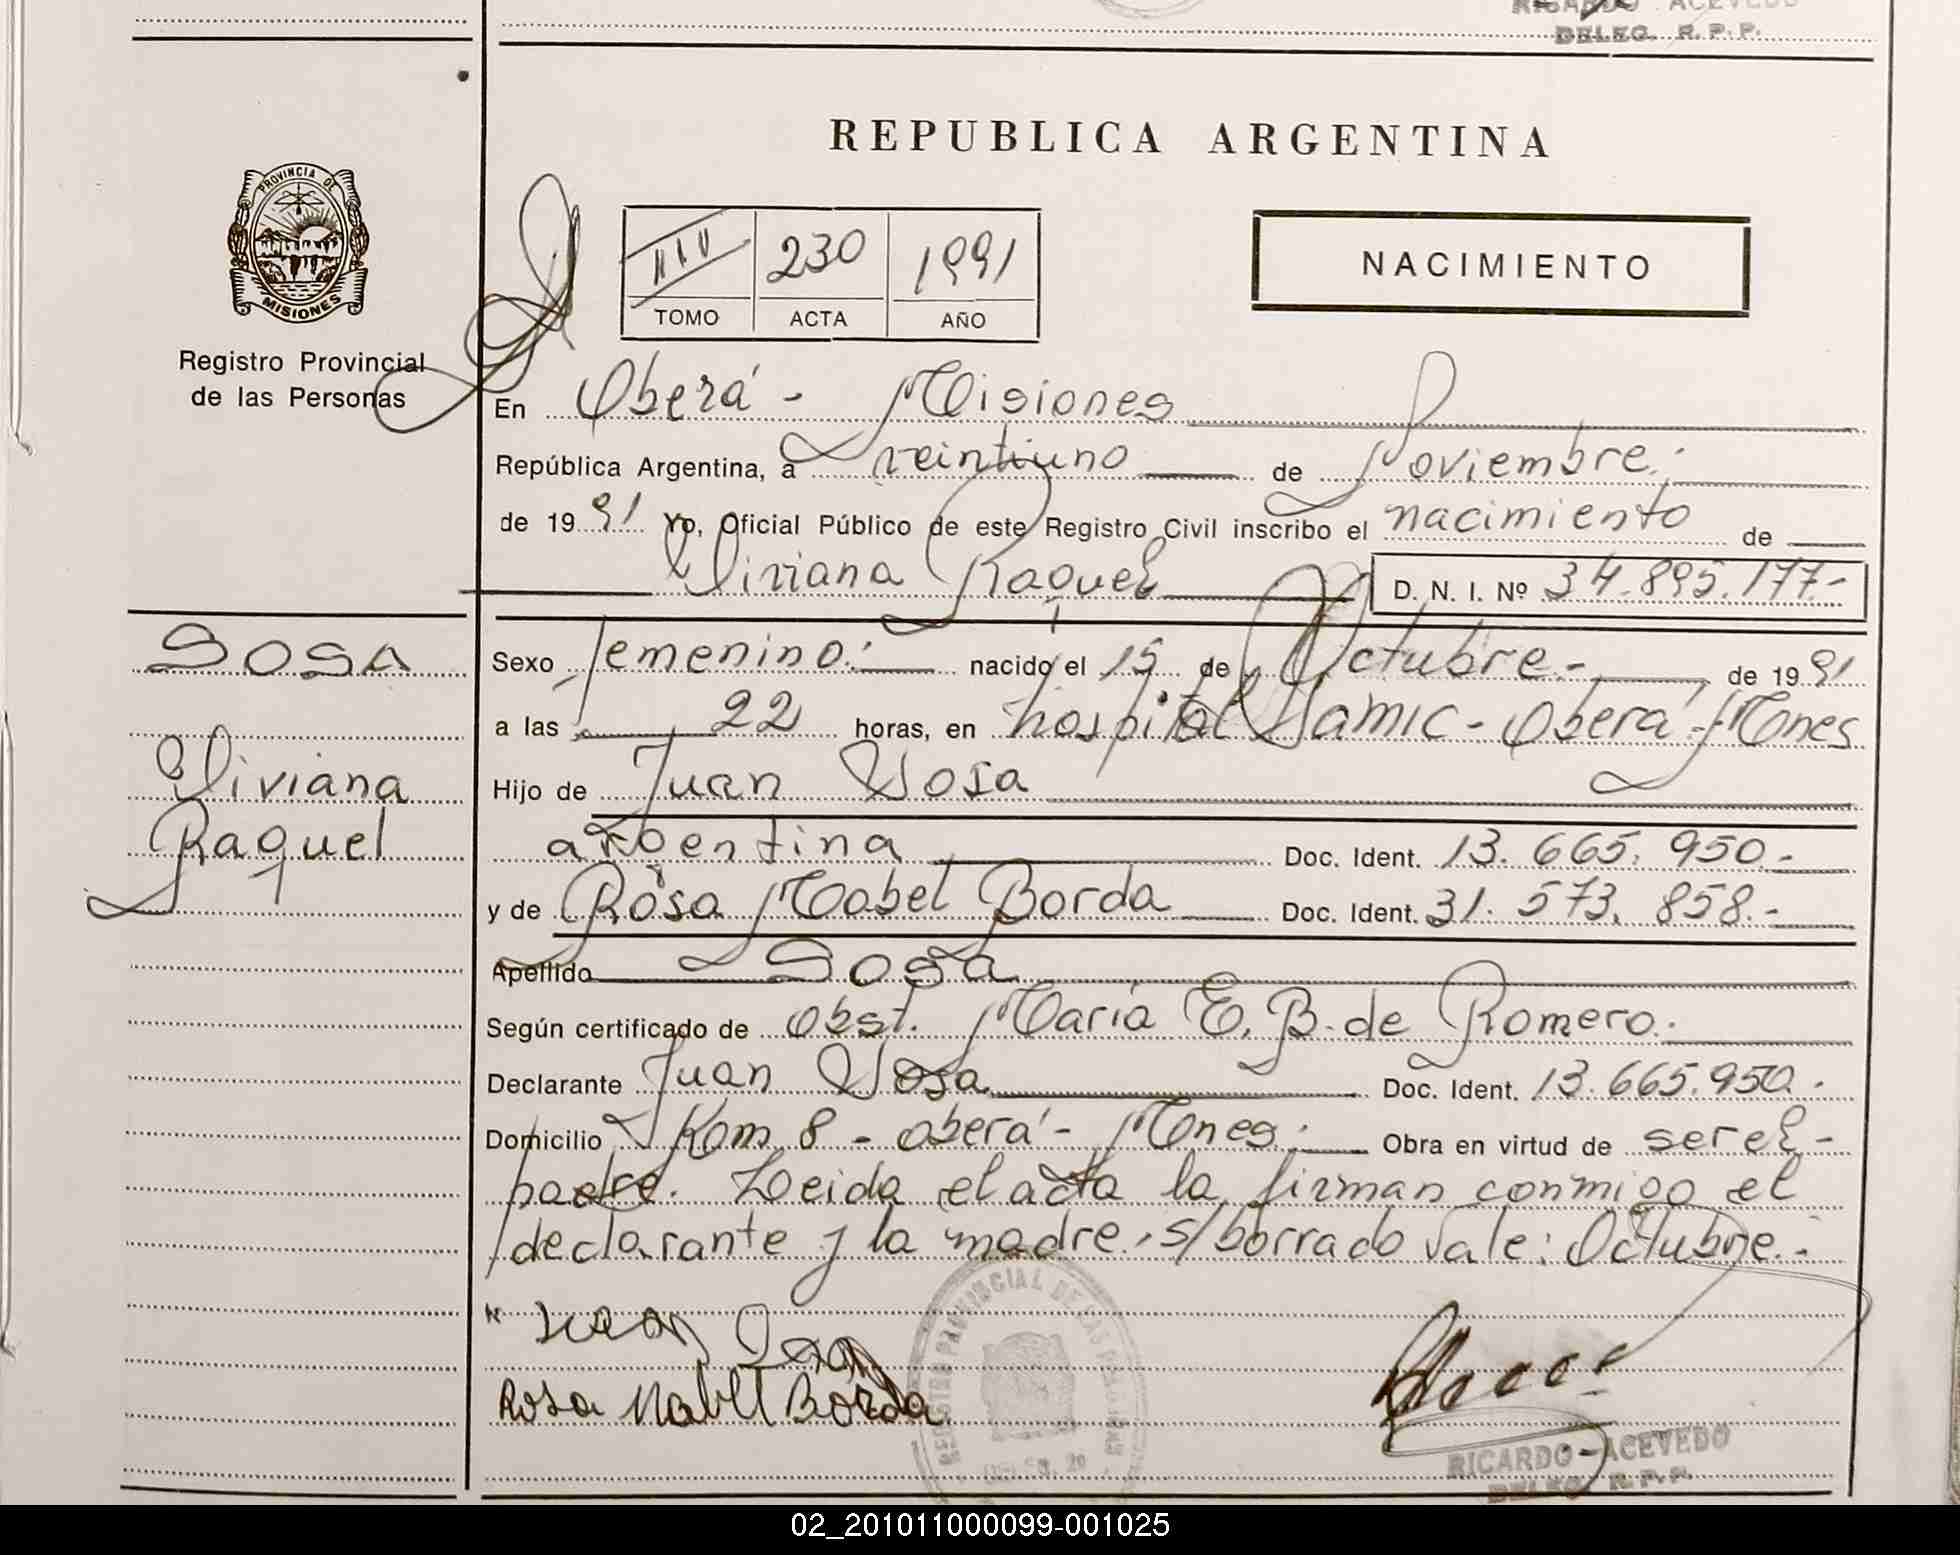 RICARDO ACEVEDO
DELEG. R. P. P.
REPUBLICA ARGENTINA
PROVINCIA DE
MISIONES
Registro Provincial
de las Personas
230 1991
TOMO ACTA AÑO
NACIMIENTO
En Oberá - Misiones
República Argentina, a veintiuno de Noviembre
de 19 91 Yo, Oficial Público de este Registro Civil inscribo el nacimiento de
Viviana Raquel D. N. I. Nº 34.895.177.-
SOSA
Viviana
Raquel
Sexo femenino.- nacido el 15 de Octubre.- de 19 91
a las 22 horas, en hospital Samic - Oberá - Mnes
Hijo de Juan Sosa
argentina Doc. Ident. 13. 665. 950.-
y de Rosa Mabel Borda Doc. Ident. 31. 573. 858.-
Apellido SOSA
Según certificado de obst. María E. B. de Romero.
Declarante Juan Sosa Doc. Ident. 13.665.950.
Domicilio Km 8 - Oberá - Mnes. Obra en virtud de ser el-
padre. Leida el acta la firman conmigo el
declarante y la madre. s/borrado vale: Octubre.-
Juan Sosa
Rosa Mabel Borda
REGISTRO PROVINCIAL DE LAS PERSONAS
RICARDO ACEVEDO
DELEG. R. P. P.
02_201011000099-001025